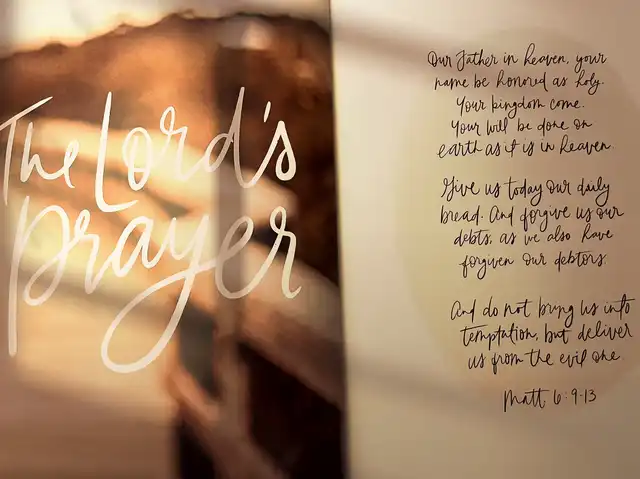 The Lord's
Prayer
Our Father in heaven, your
name be honored as holy.
Your kingdom come.
Your will be done on
earth as it is in heaven.
Give us today our daily
bread. And forgive us our
debts, as we also have
forgiven our debtors.
And do not bring us into
temptation, but deliver
us from the evil one.
Matt. 6:9-13